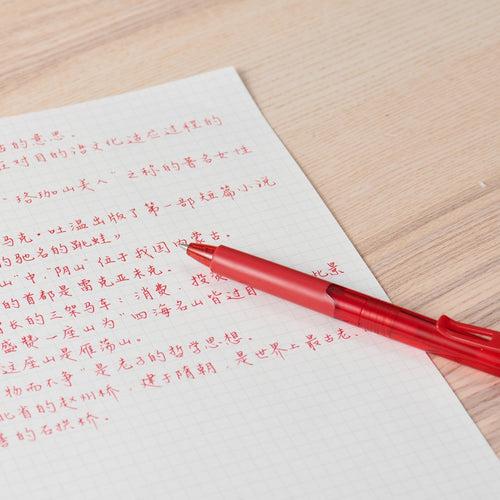 的意思。
对目的语文化适应过程的
"珞珈山美人"之称的著名女性
马克·吐温出版了第一部短篇小说
的驰名的跳蛙》
山"中,"阴山"位于我国内蒙古。
的首都是雷克亚未克。
长的三架马车:消费、投资
盛赞一座山为"四海名山"曾过目
这座山是雁荡山。
物而不争"是老子的哲学思想。
北省的赵州桥,建于隋朝,是世界上最古老、
的石拱桥。